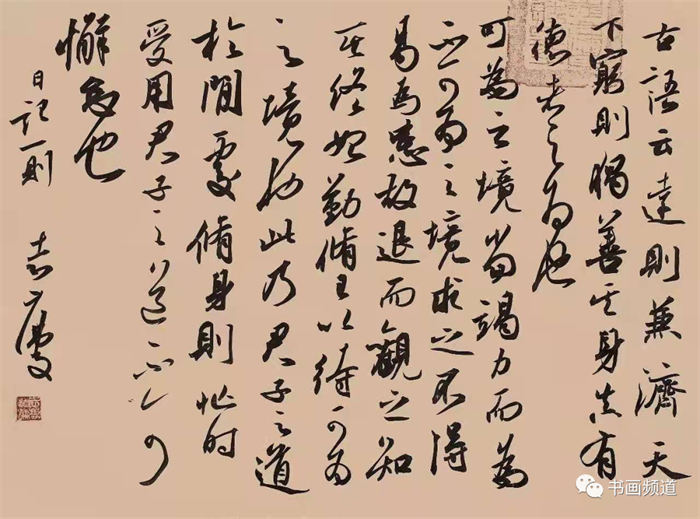 古語云達則兼濟天
下窮則獨善其身真有
德者之為也
可為之境當竭力而為
可为之境求之不得
易為患故退而觀之知
其終始勤脩以待可为
之境也此乃君子之道
於閒處脩身則忙時
受用君子之道不可
懈怠也
日記一則
书画频道